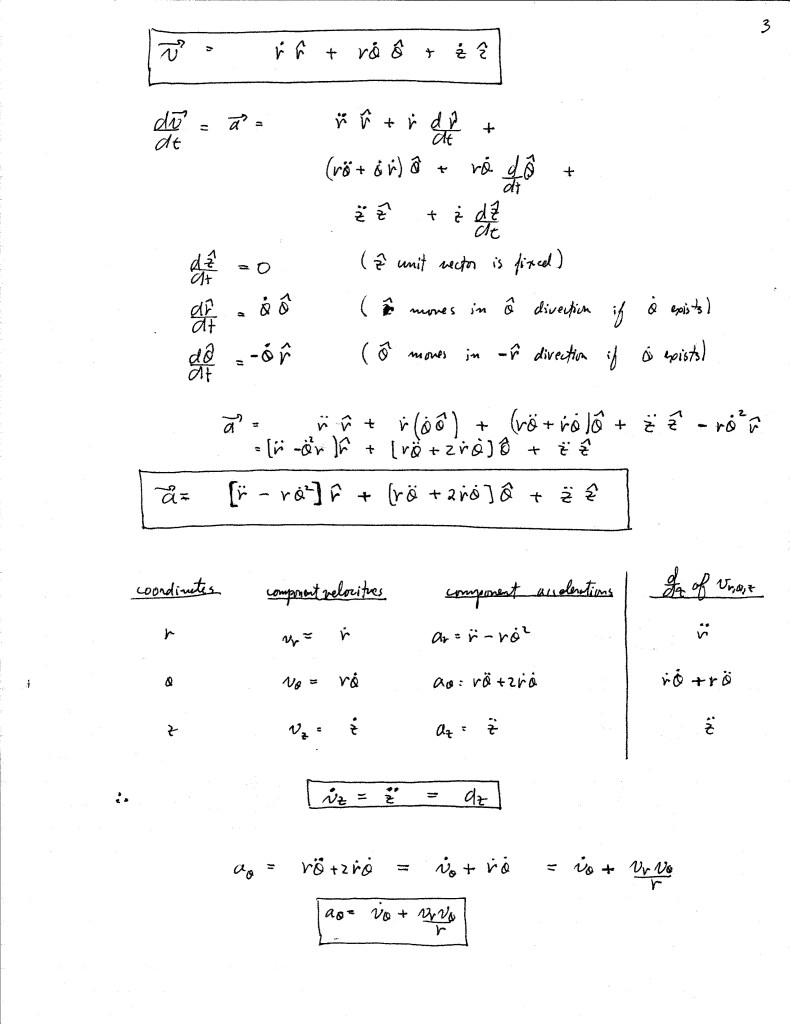 3
v⃗ = ṙ r̂ + rθ̇ θ̂ + ż ẑ
dv⃗/dt = a⃗ = r̈ r̂ + ṙ dr̂/dt +
(rθ̈ + θ̇ṙ) θ̂ + rθ̇ d/dt θ̂ +
z̈ ẑ + ż dẑ/dt
dẑ/dt = 0 (ẑ unit vector is fixed)
dr̂/dt = θ̇ θ̂ (r̂ moves in θ̂ direction if θ̇ exists)
dθ̂/dt = -θ̇ r̂ (θ̂ moves in -r̂ direction if θ̇ exists)
a⃗ = r̈ r̂ + ṙ(θ̇θ̂) + (rθ̈ + ṙθ̇)θ̂ + z̈ ẑ - rθ̇² r̂
= [r̈ - θ̇²r]r̂ + [rθ̈ + 2ṙθ̇]θ̂ + z̈ ẑ
a⃗ = [r̈ - rθ̇²] r̂ + [rθ̈ + 2ṙθ̇] θ̂ + z̈ ẑ
coordinates component velocities component accelerations d/dt of v_r,θ,z
r v_r = ṙ a_r = r̈ - rθ̇² r̈
θ v_θ = rθ̇ a_θ = rθ̈ + 2ṙθ̇ ṙθ̇ + rθ̈
z v_z = ż a_z = z̈ z̈
∴ v̇_z = z̈ = a_z
a_θ = rθ̈ + 2ṙθ̇ = v̇_θ + ṙθ̇ = v̇_θ + v_r v_θ/r
a_θ = v̇_θ + v_r v_θ/r